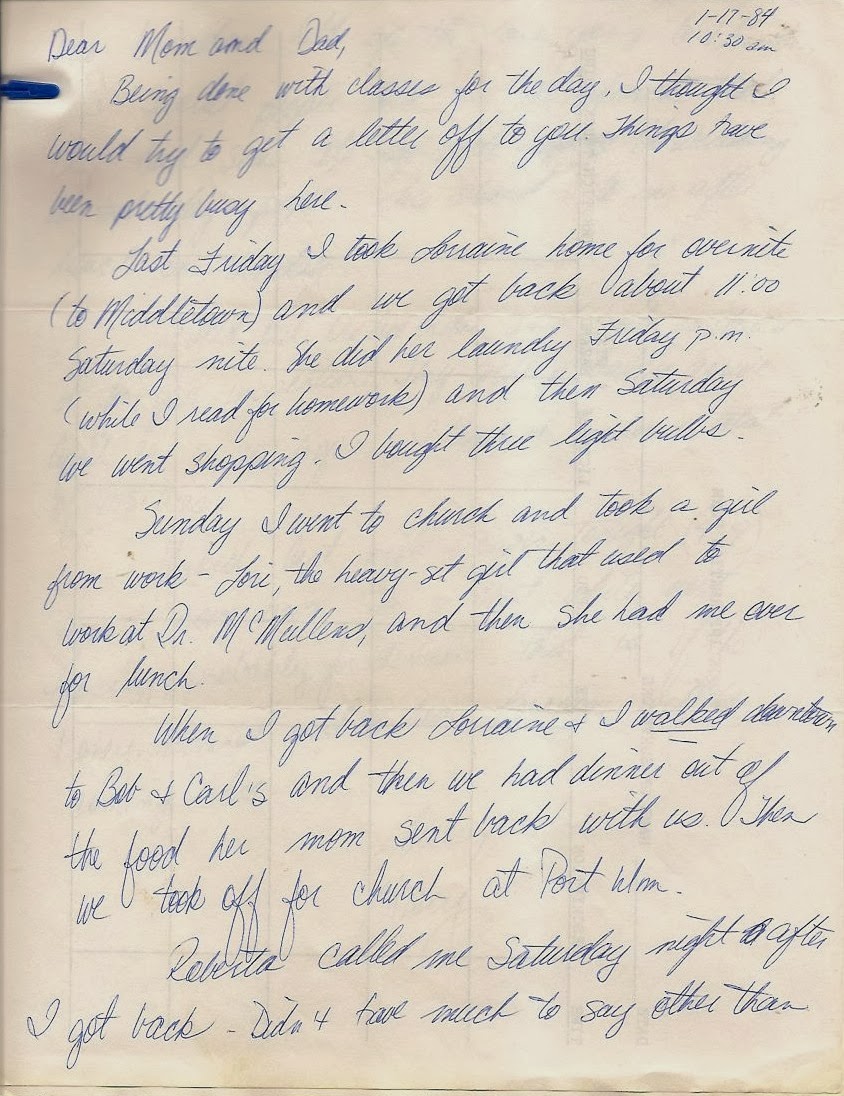 1-17-84
10:30 am
Dear Mom and Dad,
Being done with classes for the day, I thought I
would try to get a letter off to you. Things have
been pretty busy here.
Last Friday I took Lorraine home for overnite
(to Middletown) and we got back about 11:00
Saturday nite. She did her laundry Friday p.m.
(while I read for homework) and then Saturday
we went shopping. I bought three light bulbs.
Sunday I went to church and took a girl
from work - Lori, the heavy-set girl that used to
work at Dr. McMullens, and then she had me over
for lunch.
When I got back Lorraine & I walked downtown
to Bob & Carl's and then we had dinner out of
the food her mom sent back with us. Then
we took off for church at Port Wm.
Roberta called me Saturday night after
I got back - Didn't have much to say other than